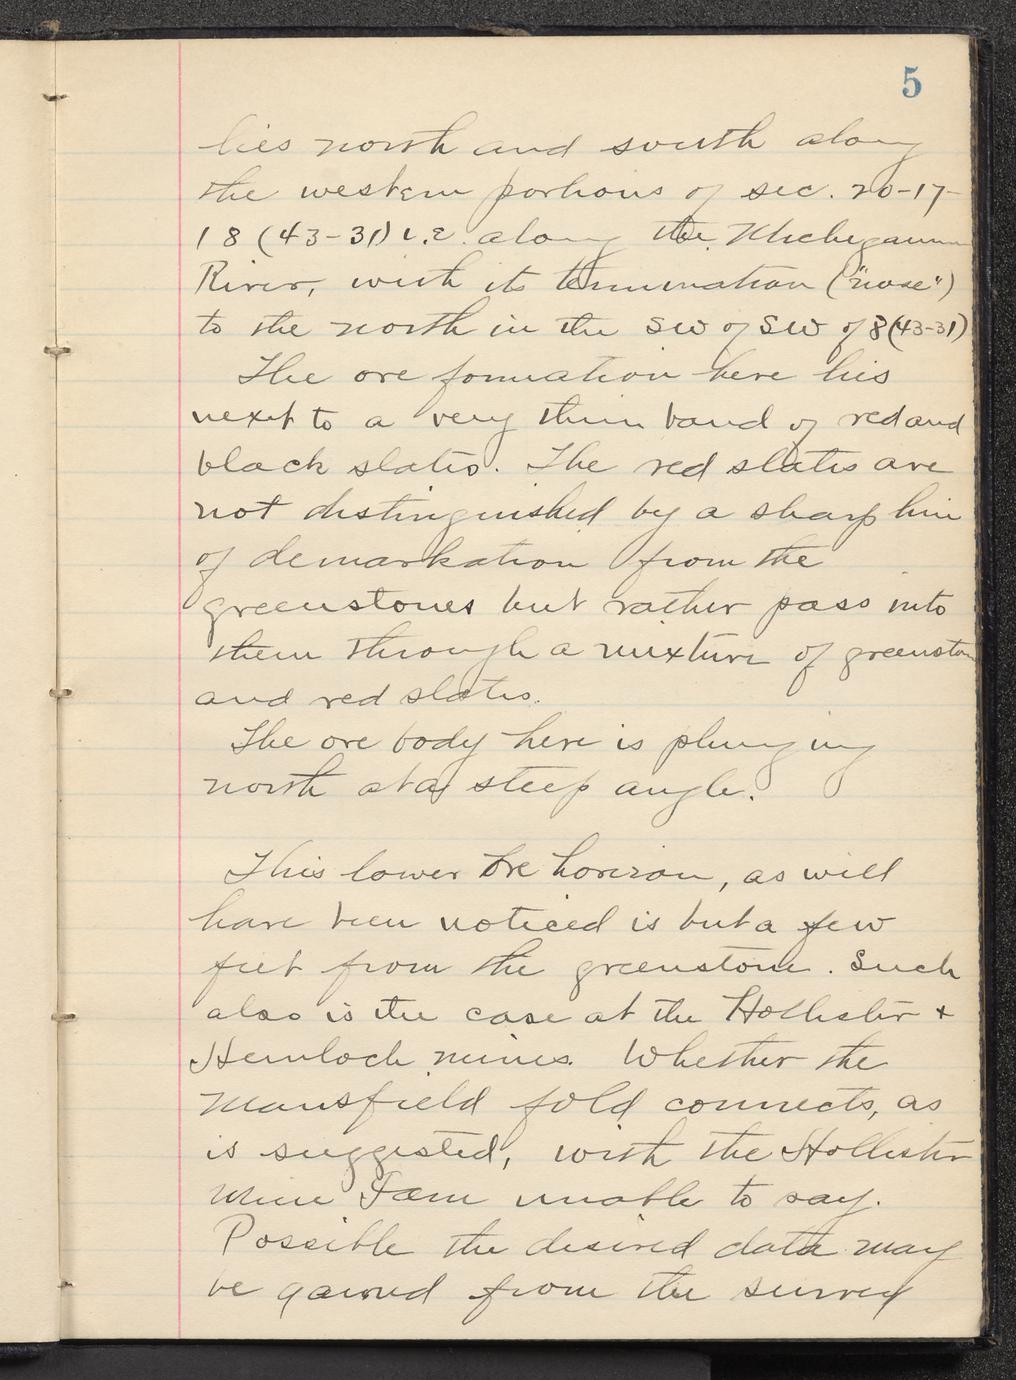 5
lies north and south along
the western portions of sec. 20-17-
18 (43-31) i.e. along the Michigamme
River, with its termination ("nose")
to the north in the SW of SW of 8(43-31)
The ore formation here lies
next to a very thin band of red and
black slates. The red slates are
not distinguished by a sharp line
of demarkation from the
greenstones but rather pass into
them through a mixture of greenston
and red slates.
The ore body here is plunging
north at a steep angle.
This lower ore horizon, as will
have been noticed is but a few
feet from the greenstone. Such
also is the case at the Hollister +
Hemlock mines. Whether the
Mansfield fold connects, as
is suggested, with the Hollister
Mine I am unable to say.
Possible the desired data may
be gained from the survey